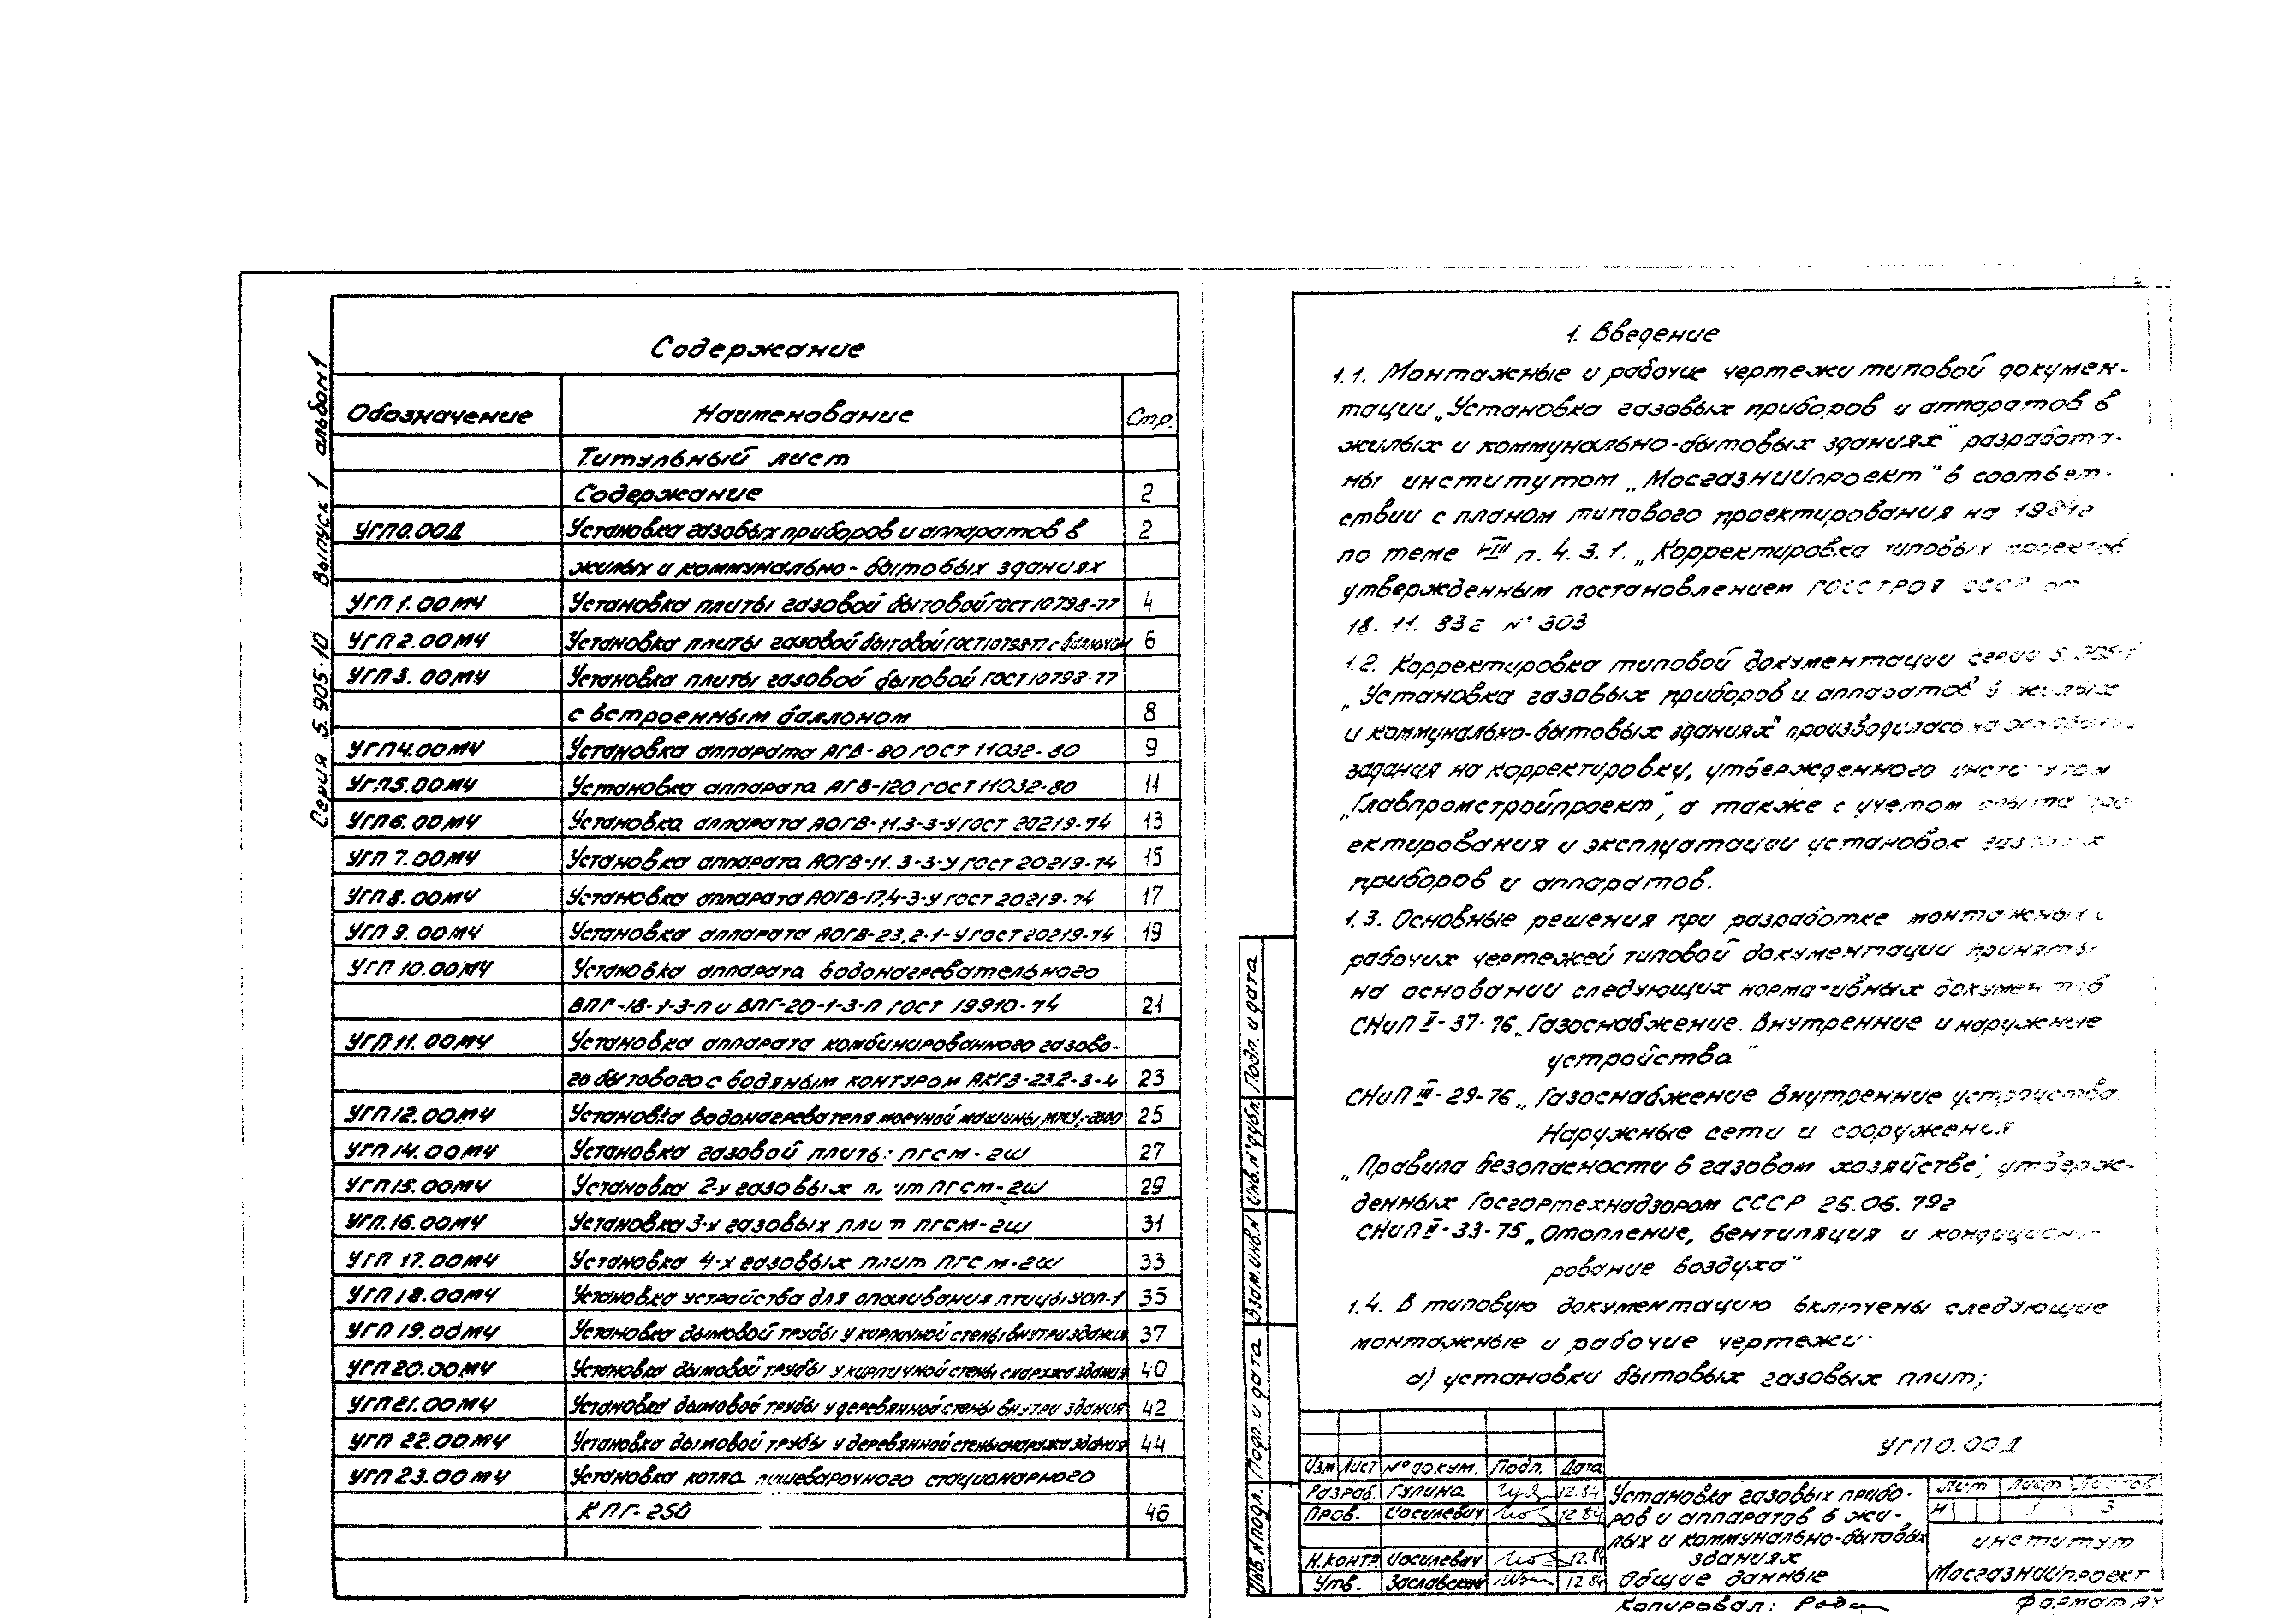 Серия 5.905-10 Выпуск 1 альбом 1
Содержание
Обозначение Наименование Стр.
Титульный лист
Содержание 2
УГП0.00Д Установка газовых приборов и аппаратов в 2
жилых и коммунально-бытовых зданиях
УГП 1.00МЧ Установка плиты газовой бытовой ГОСТ 10798-77 4
УГП 2.00МЧ Установка плиты газовой бытовой ГОСТ 10798-77 с баллоном 6
УГП 3.00МЧ Установка плиты газовой бытовой ГОСТ 10798-77
с встроенным баллоном 8
УГП4.00МЧ Установка аппарата АГВ-80 ГОСТ 11032-80 9
УГП5.00МЧ Установка аппарата АГВ-120 ГОСТ 11032-80 11
УГП6.00МЧ Установка аппарата АОГВ-11.3-3-У ГОСТ 20219-74 13
УГП 7.00МЧ Установка аппарата АОГВ-11.3-3-У ГОСТ 20219-74 15
УГП 8.00МЧ Установка аппарата АОГВ-17,4-3-У ГОСТ 20219-74 17
УГП 9.00МЧ Установка аппарата АОГВ-23,2-1-У ГОСТ 20219-74 19
УГП 10.00МЧ Установка аппарата водонагревательного
ВПГ-18-1-3-П и ВПГ-20-1-3-П ГОСТ 19910-74 21
УГП 11.00МЧ Установка аппарата комбинированного газово-
го бытового с водяным контуром АКГВ-23.2-3-4 23
УГП 12.00МЧ Установка водонагревателя моечной машины ММУ-2000 25
УГП 14.00МЧ Установка газовой плиты ПГСМ-2Ш 27
УГП 15.00МЧ Установка 2-х газовых плит ПГСМ-2Ш 29
УГП.16.00МЧ Установка 3-х газовых плит ПГСМ-2Ш 31
УГП 17.00МЧ Установка 4-х газовых плит ПГСМ-2Ш 33
УГП 18.00МЧ Установка устройства для опаливания птицы УОП-1 35
УГП 19.00МЧ Установка дымовой трубы у кирпичной стены внутри здания 37
УГП 20.00МЧ Установка дымовой трубы у кирпичной стены снаружи здания 40
УГП 21.00МЧ Установка дымовой трубы у деревянной стены внутри здания 42
УГП 22.00МЧ Установка дымовой трубы у деревянной стены снаружи здания 44
УГП 23.00МЧ Установка котла пищеварочного стационарного
КПГ-250 46
1. Введение
1.1. Монтажные и рабочие чертежи типовой докумен-
тации „Установка газовых приборов и аппаратов в
жилых и коммунально-бытовых зданиях" разработа-
ны институтом „МосгазНИИпроект" в соответ-
ствии с планом типового проектирования на 1984г
по теме п. 4.3.1. „Корректировка типовых проектов
утвержденным постановлением ГОССТРОЯ СССР от
18.11.83г № 303
1.2. Корректировка типовой документации серии
„Установка газовых приборов и аппаратов в жилых
и коммунально-бытовых зданиях" производилась на основании
задания на корректировку, утвержденного институтом
„Главпромстройпроект", а также с учетом опыта про-
ектирования и эксплуатации установок газовых
приборов и аппаратов.
1.3. Основные решения при разработке монтажных и
рабочих чертежей типовой документации приняты
на основании следующих нормативных документов
СНиП II-37-76 „Газоснабжение. Внутренние и наружные
устройства"
СНиП III-29-76 „Газоснабжение Внутренние устройства.
Наружные сети и сооружения
„Правила безопасности в газовом хозяйстве", утверж-
денных Госгортехнадзором СССР 26.06.79г
СНиП II-33-75 „Отопление, вентиляция и кондицион-
рование воздуха"
1.4. В типовую документацию включены следующие
монтажные и рабочие чертежи:
а) установки бытовых газовых плит;
Инв.№подл. Подп. и дата Взам.инв.№ Инв.№дубл. Подп. и дата
УГП 0.00Д
Изм Лист № докум. Подп. Дата
Разраб. Гулина 12.84
Пров. Иосилевич 12.84
Н.контр Иосилевич 12.84
Утв. Заславский 12.84
Установка газовых прибо-
ров и аппаратов в жи-
лых и коммунально-бытовых
зданиях
Общие данные
Лит Лист Листов
И 1 3
институт
МосгазНИИпроект
Копировал: Формат А4